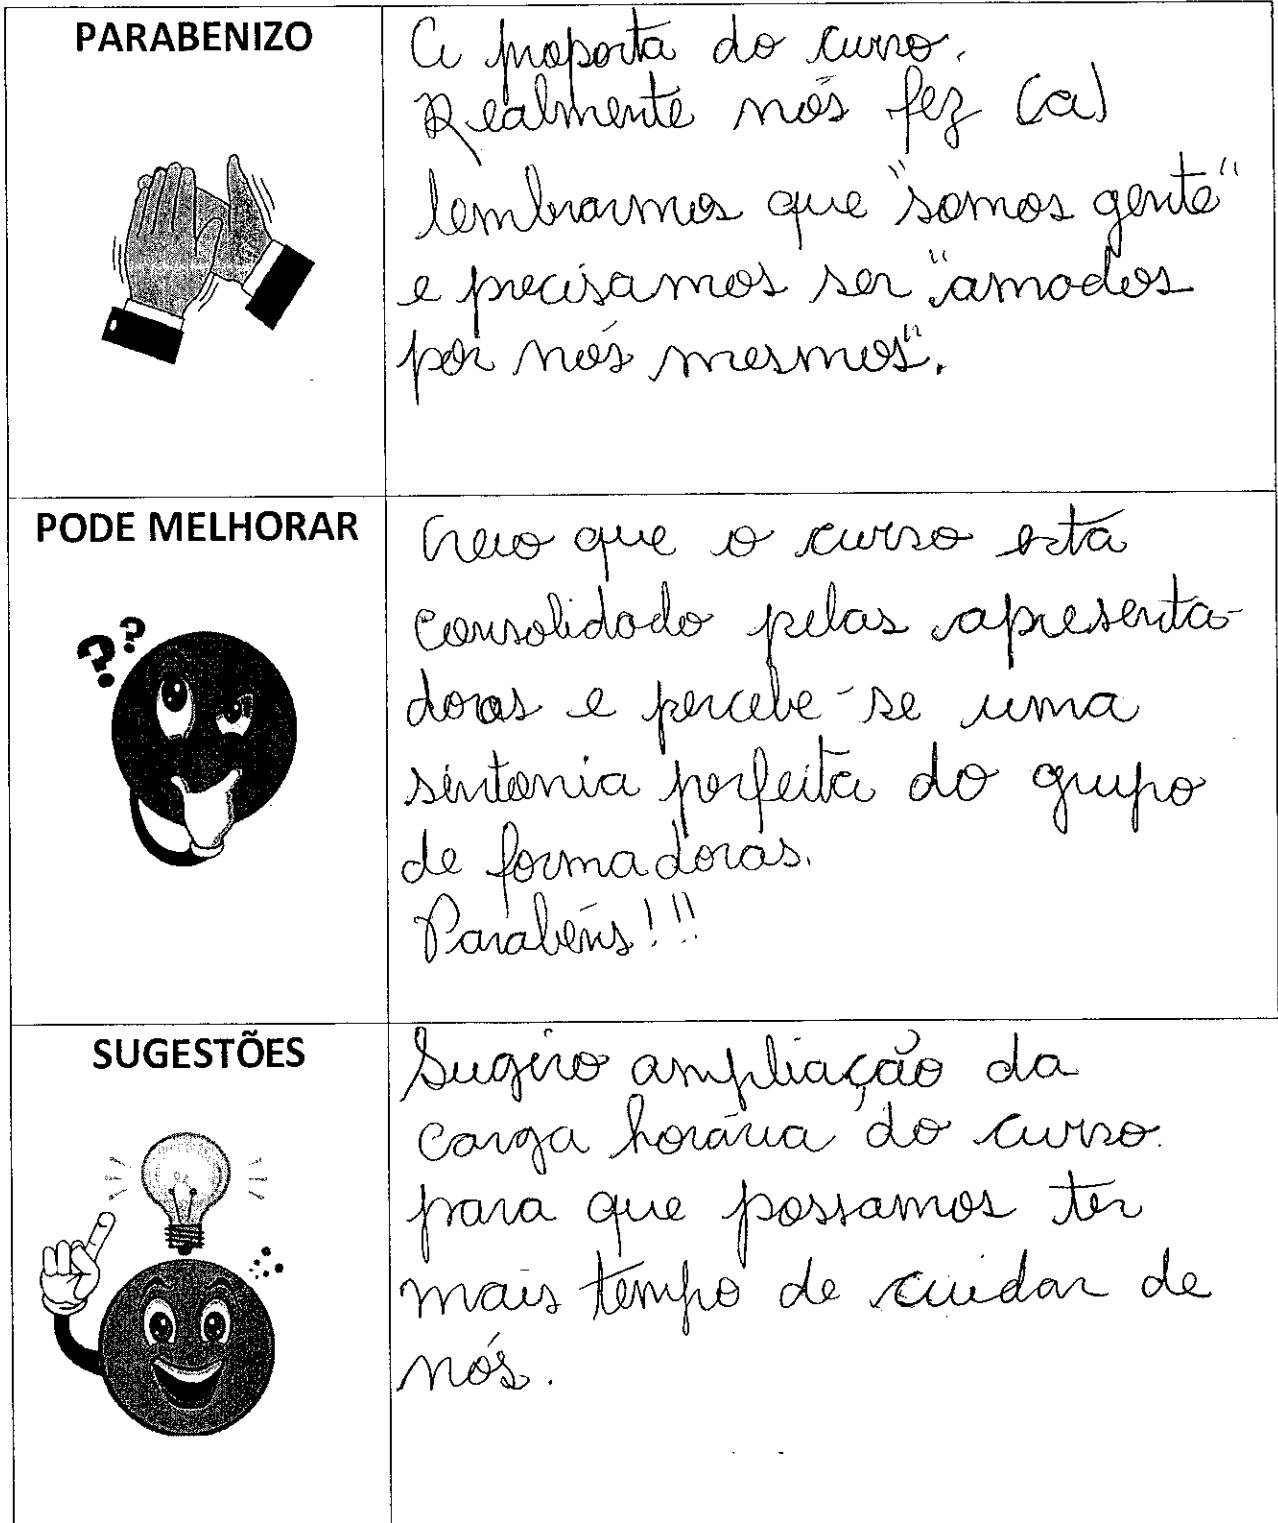 PARABENIZO
A proposta do curso.
Realmente nós fez (a)
lembrarmos que "somos gente"
e precisamos ser "amados
por nós mesmos".
PODE MELHORAR
??
Creio que o curso está
consolidado pelas apresenta-
doras e percebe-se uma
sintonia perfeita do grupo
de formadoras.
Parabéns!!!
SUGESTÕES
Sugiro ampliação da
carga horária do curso.
para que possamos ter
mais tempo de cuidar de
nós.